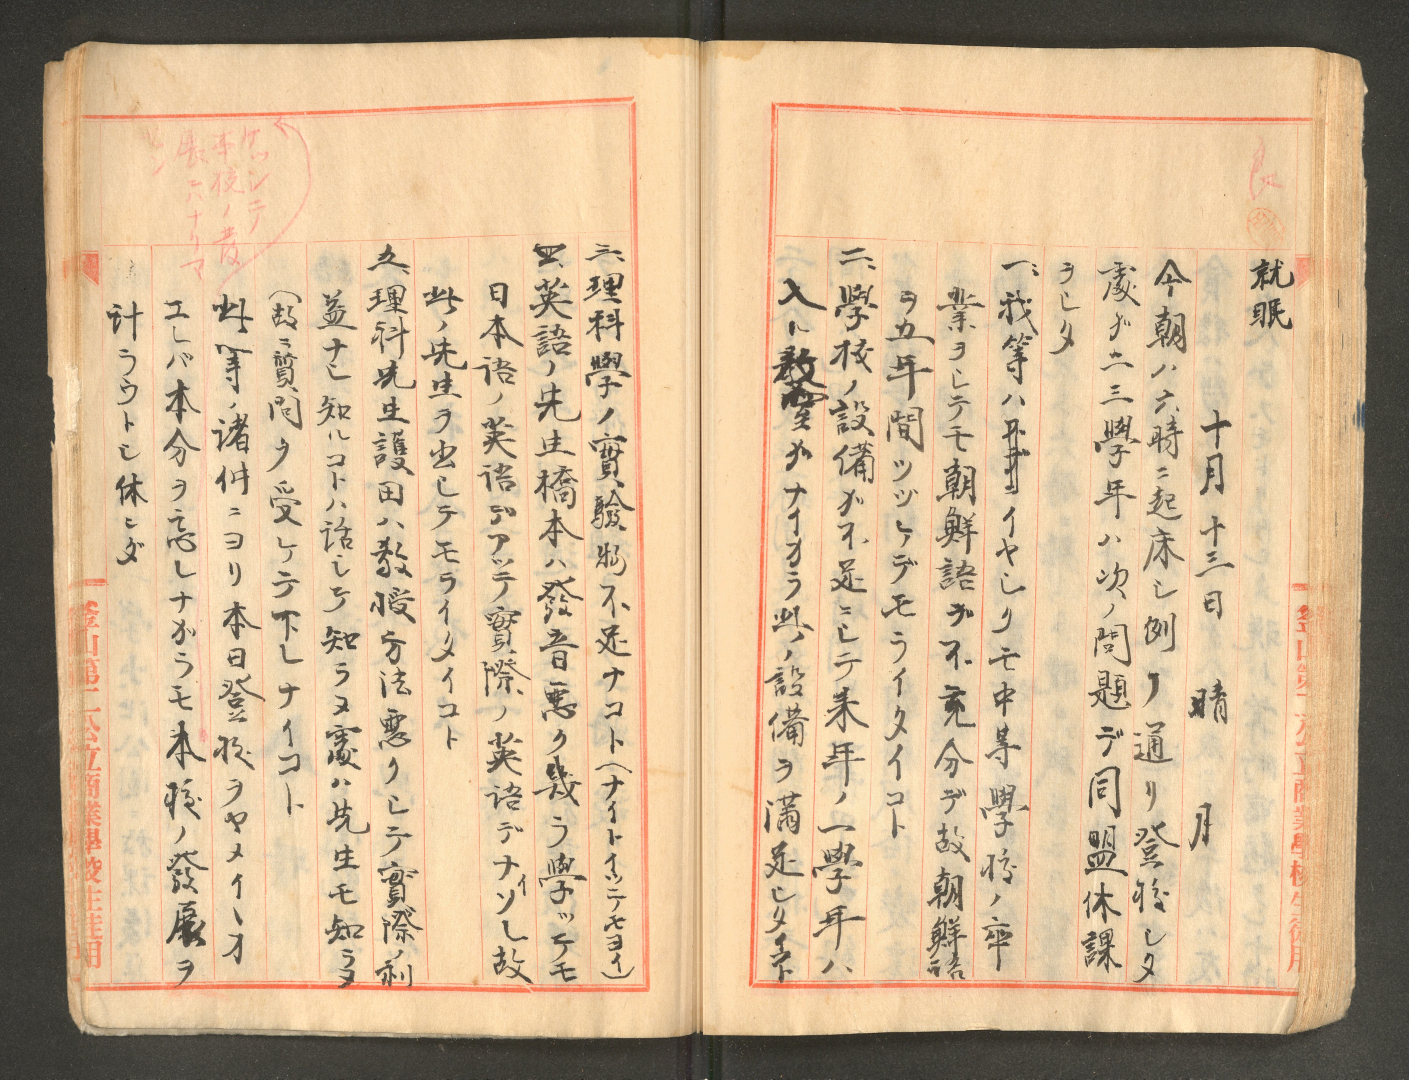 良
就眠
十月十三日 晴 月
今朝ハ六時ニ起床シ例ノ通リ登校シタ
處ガ二三學年ハ次ノ問題デ同盟休課
ヲシタ
一、我等ハ イヤシクモ中等學校ノ卒
業ヲシテモ朝鮮語ガ不充分デ故朝鮮語
ヲ五年間ツヅケデモライタイコト
二、學校ノ設備ガ不足ニシテ来年ノ一學年ハ
入ル教室ガナイカラ此ノ設備ヲ満足シタイコト
三、理科學ノ實驗物不足ナコト(ナイトイッテモヨイ)
四、英語ノ先生橋本ハ發音悪ク幾ラ學ッケモ
日本語ノ英語デアッテ實際ノ英語デナイソシ故
此ノ先生ヲ出シテモライタイコト
五、理科先生護田ハ教授方法悪クシテ實際ノ利
益ナシ知ルコトハ話シテ知ラヌ處ハ先生モ知ラヌ
(故ニ質問ヲ受ケテ下シナイコト
此等ノ諸件ニヨリ本日登校ヲヤメイヽオ
エレバ本分ヲ忘レナガラモ本校ノ發展ヲ
計ラウトシ休ンダ
ケッシテ
本校ノ發
展ニハナリマ
セン
釜山第二公立商業學校生徒用
釜山第二公立商業學校生徒用